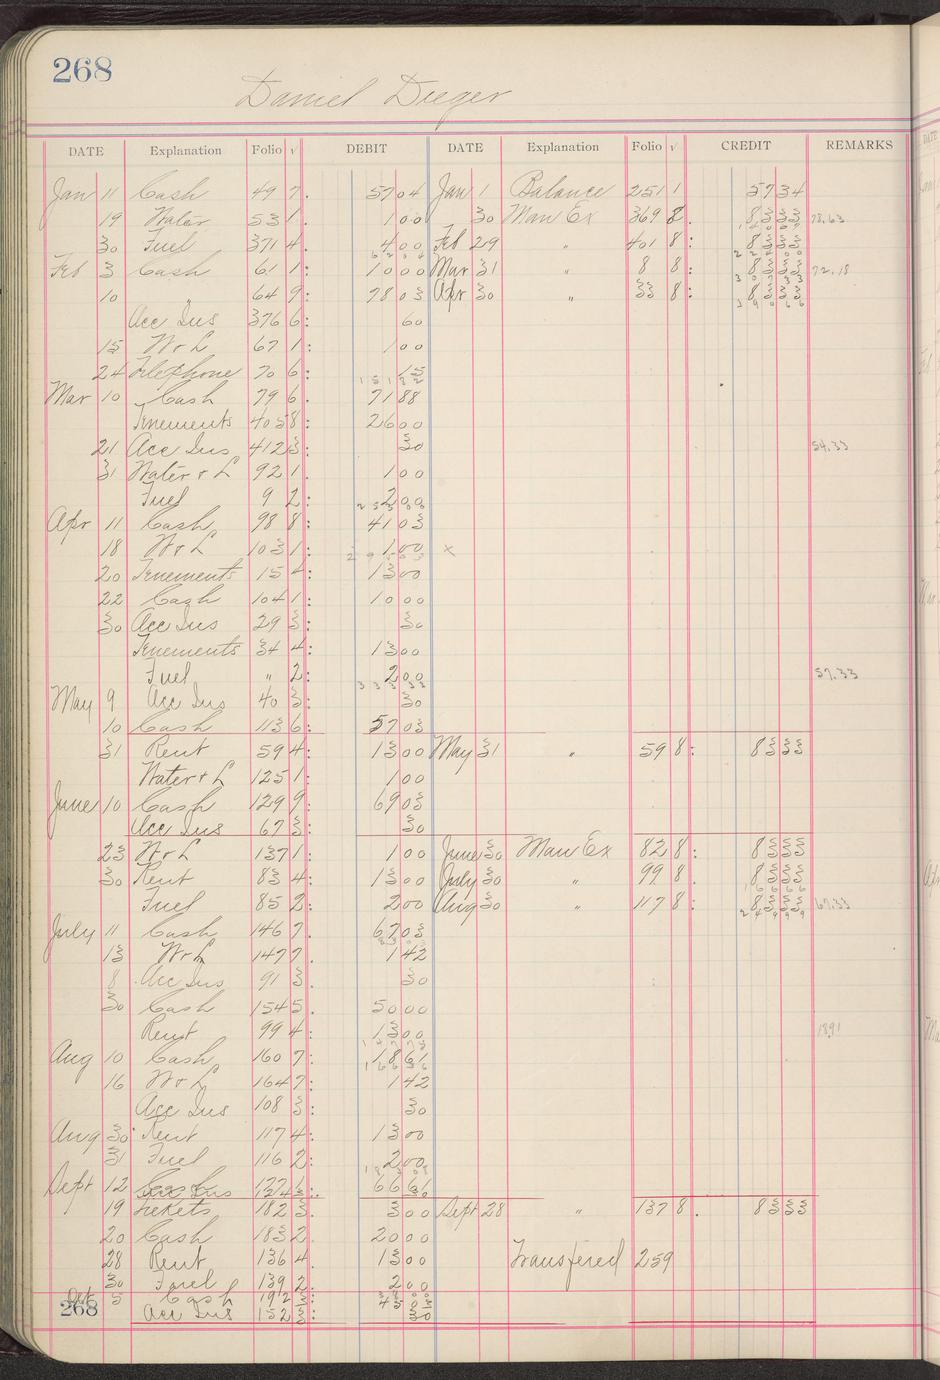 268
Daniel Dieger
DATE Explanation Folio √ DEBIT DATE Explanation Folio √ CREDIT REMARKS
Jan 11 Cash 49 7. 57 04 Jan 1 Balance 251 1 57 34
19 Water 53 1. 1 00 30 Man Ex 369 8. 83 33 78.63
30 Fuel 371 4. 4 00 Feb 29 " 401 8: 83 33
Feb 3 Cash 61 1: 10 00 Mar 31 " 8 8: 83 33 72.18
10 " 64 9: 78 03 Apr 30 " 33 8: 83 33
Acc Ins 376 6: 60
15 W & L 67 1: 1 00
24 Telephone 70 6: 15
Mar 10 Cash 79 6. 71 88
Tenements 405 8: 26 00
21 Acc Ins 412 3: 30 54.33
31 Water & L 92 1. 1 00
Fuel 9 2: 2 00
Apr 11 Cash 98 8: 41 03
18 W & L 103 1: 1 00 x
20 Tenements 15 4: 13 00
22 Cash 104 1: 10 00
30 Acc Ins 29 3: 30
Tenements 34 4: 13 00
Fuel " 2: 2 00 57.33
May 9 Acc Ins 40 3: 30
10 Cash 113 6: 57 03
31 Rent 59 4: 13 00 May 31 " 59 8: 83 33
Water & L 125 1: 1 00
June 10 Cash 129 9: 69 03
Acc Ins 67 3: 30
23 W & L 137 1: 1 00 June 30 Man Ex 82 8: 83 33
30 Rent 83 4: 13 00 July 30 " 99 8. 83 33
Fuel 85 2: 2 00 Aug 30 " 117 8: 83 33 67.33
July 11 Cash 146 7. 67 03
13 W & L 147 7. 1 42
8 Acc Ins 91 3. 30
30 Cash 154 5. 50 00
Rent 99 4: 13 00 18.91
Aug 10 Cash 160 7: 18 61
16 W & L 164 7: 1 42
Acc Ins 108 3: 30
Aug 30 Rent 117 4: 13 00
31 Fuel 116 2: 2 00
Sept 12 Cash 177 1: 66 61
Acc Ins 124 3: 30
19 Tickets 182 3. 3 00 Sept 28 " 137 8. 83 33
20 Cash 183 2. 20 00
28 Rent 136 4. 13 00 Transfered 259
30 Fuel 139 2. 2 00
Oct 5 Cash 192 45 03
268 Acc Ins 152 3: 30